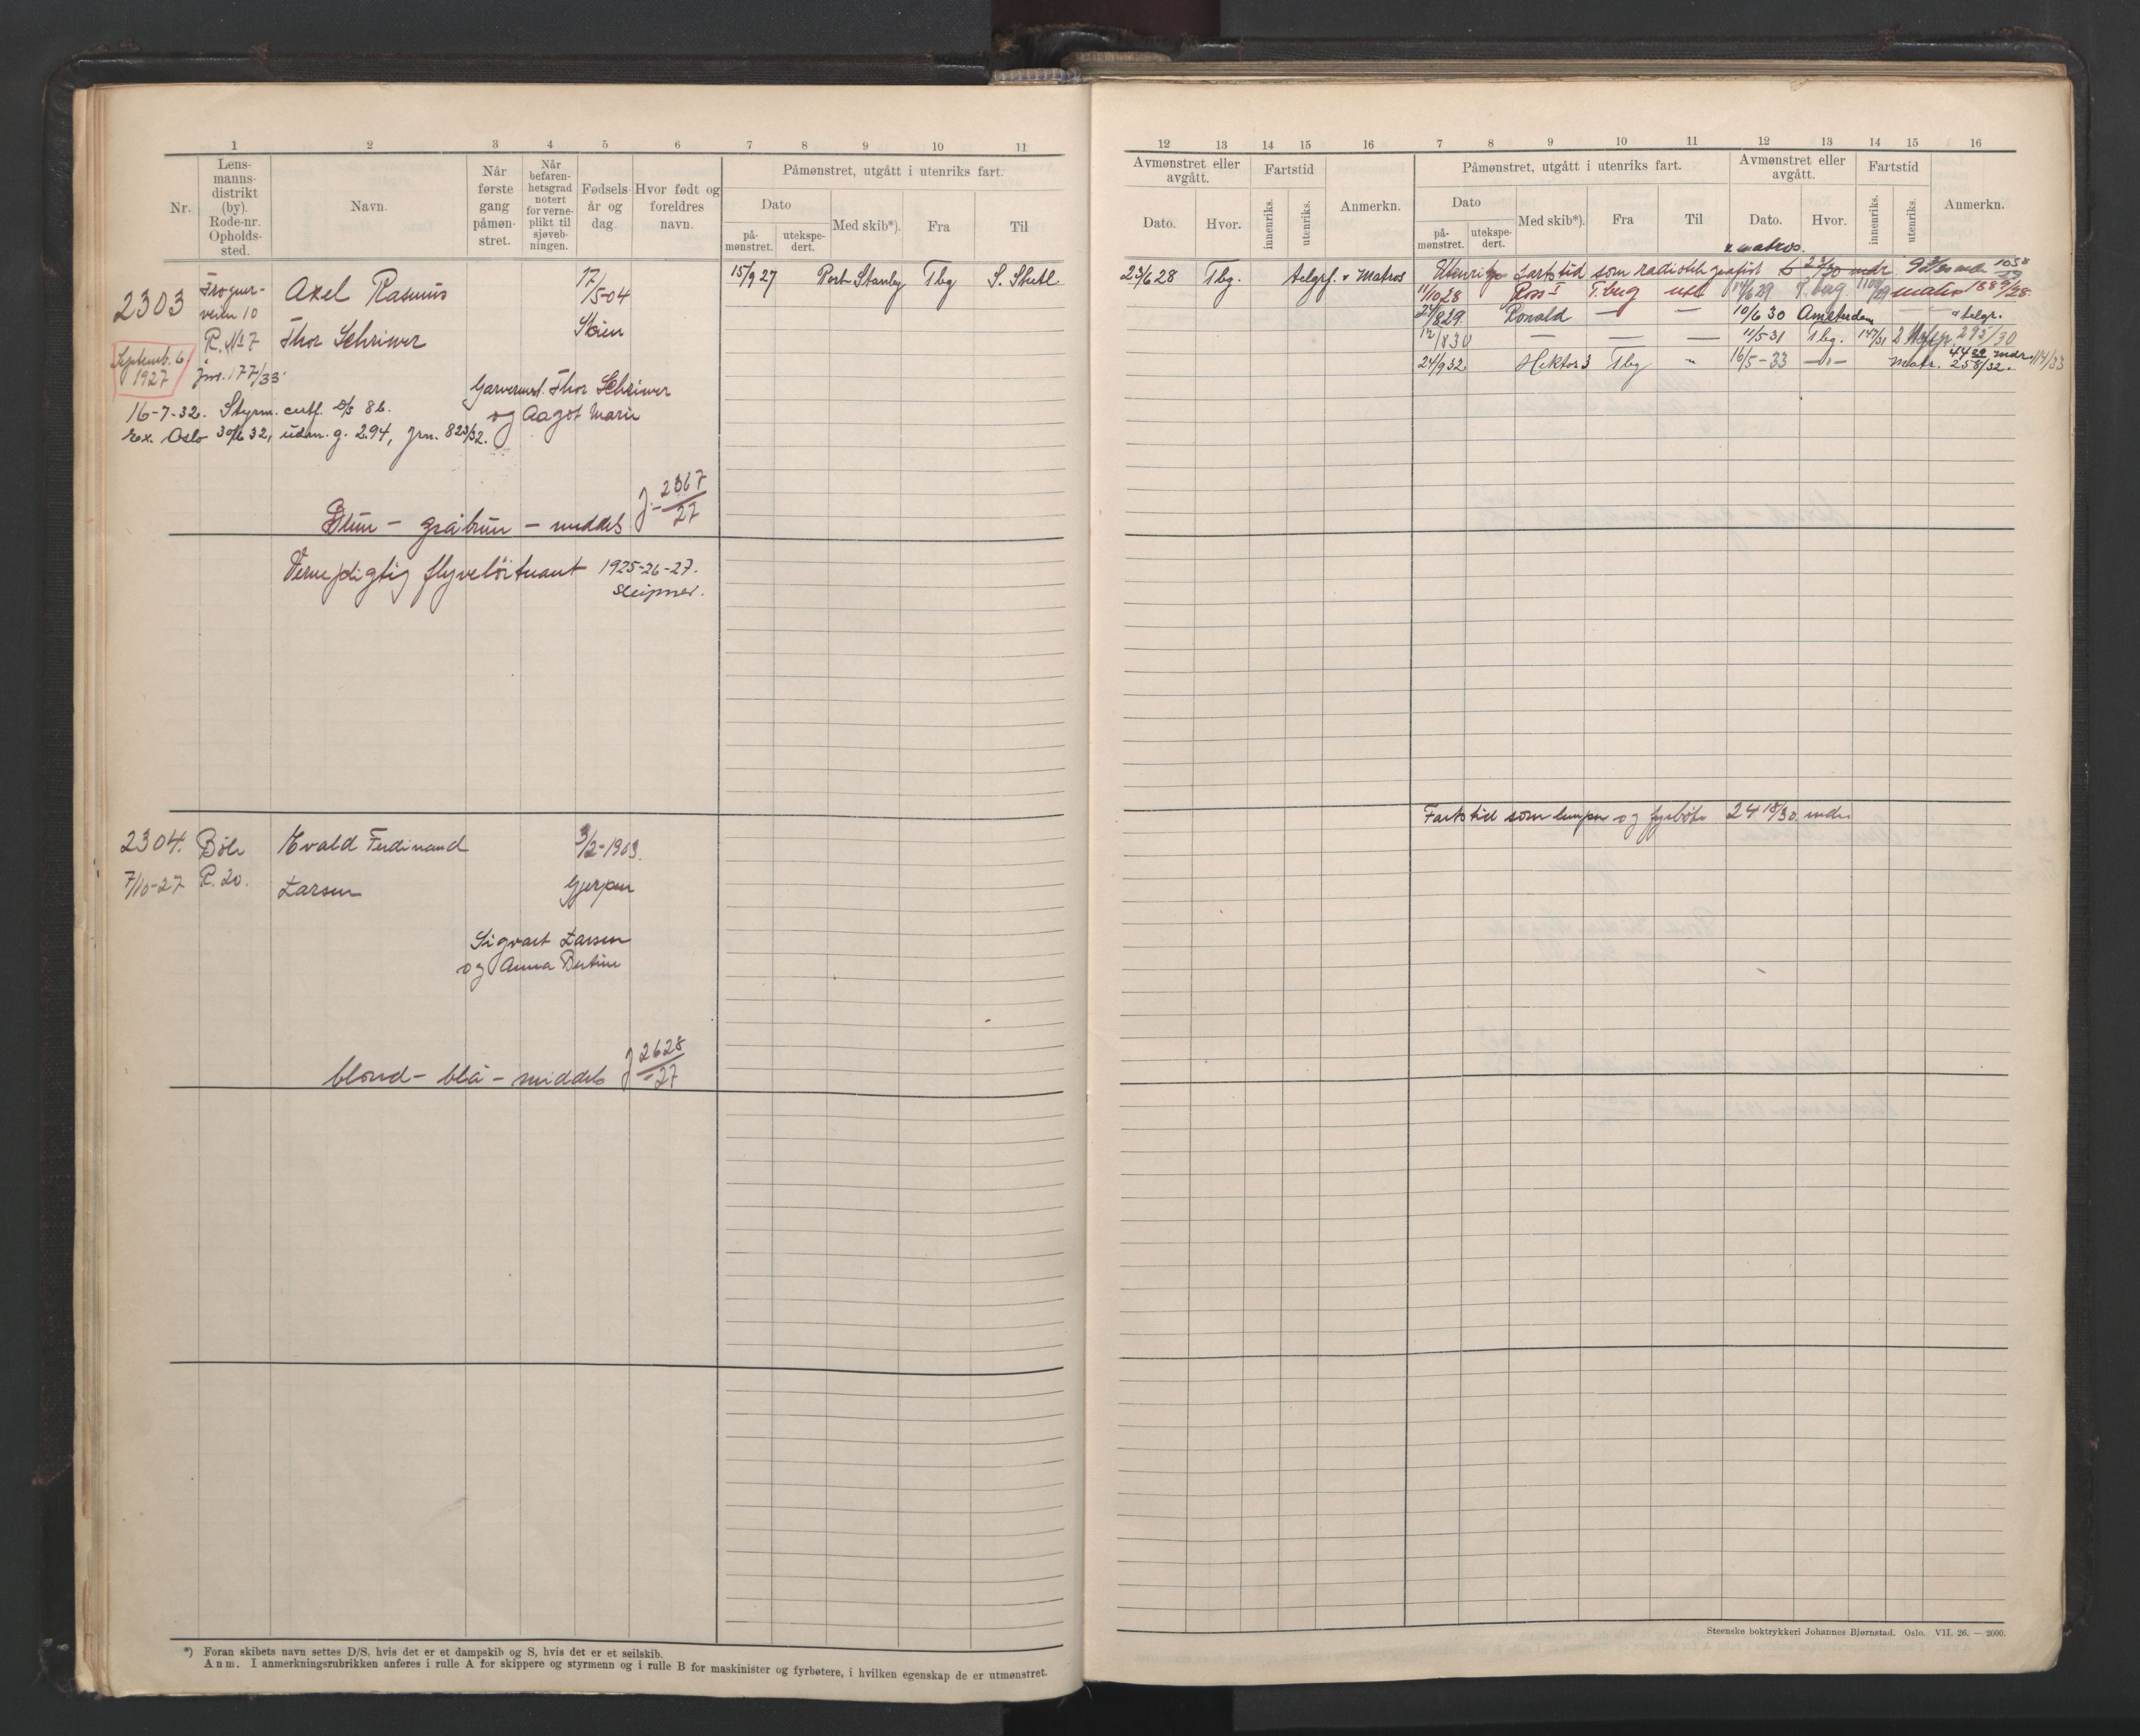 1 2 3 4 5 6 7 8 9 10 11
Nr.
Lens-
manns-
distrikt
(by).
Rode-nr.
Opholds-
sted.
Navn.
Når
første
gang
påmøn-
stret.
Når
befaren-
hetsgrad
notert
for verne-
plikt til
sjøveb-
ningen.
Fødsels-
år og
dag.
Hvor født og
foreldres
navn.
Påmønstret, utgått i utenriks fart.
Dato
på-
mønstret.
utekspe-
dert.
Med skib*).
Fra
Til
2303 Frogner- Axel Rasmus 17/5-04 15/9 27 Port Stanley Tbg S. Shetl.
veien 10
R. No 7 Thor Schriwer Skien
Septemb. 6
1927
jnr. 177/33
Garvermst. Thor Schriwer
16-7-32. Styrm. certf. D/S 86. og Aagot Marie
Ex. Oslo 30/6 32, udm. g. 294, jrn. 823/32.
Brun - gråbrun - middels J.- 2367/27
Vernepligtig flyveløitnant 1925-26-27.
Sleipner.
2304. Bøle Evald Ferdinand 3/2-1903.
7/10-27 R. 20. Larsen Gjerpen
Sigvart Larsen
og Anna Bertine
blond - blå - middels J 2628/-27
*) Foran skibets navn settes D/S, hvis det er et dampskib og S, hvis det er et seilskib.
Anm. I anmerkningsrubrikken anføres i rulle A for skippere og styrmenn og i rulle B for maskinister og fyrbøtere, i hvilken egenskap de er utmønstret.
12 13 14 15 16 7 8 9 10 11 12 13 14 15 16
Avmønstret eller
avgått.
Dato.
Hvor.
Fartstid
innenriks.
utenriks.
Anmerkn.
Påmønstret, utgått i utenriks fart.
Dato
på-
mønstret.
utekspe-
dert.
Med skib*).
Fra
Til
Avmønstret eller
avgått.
Dato.
Hvor.
Fartstid
innenriks.
utenriks.
Anmerkn.
x matros.
23/6 28 Tbg. telgrf. & Matros Utenriks fartstid som radiotelegrafist 23/30 mdr.
11/10 28 Ross I T.berg 14/6 29 T.berg matros
24/8 29. Ronald — — 10/6 30 Amsterdam — — & telgr.
12/8 30 — — — 11/5-31 Tbg. 147/31 292/30
24/9 32. Hektor 3 Tbg " 16/5-33 —"— Matr. 258/32. 114/33
Fartstid som lemper og fyrbøter 24 18/30 mdr.
Steenske boktrykkeri Johannes Bjørnstad. Oslo. VII. 26. — 2000.